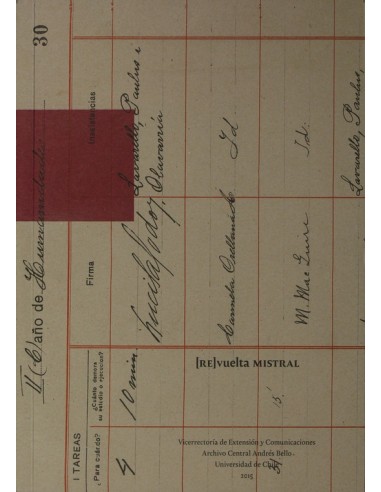 30
II (C) año de Humanidades
I TAREAS
¿Para cuándo?
¿Cuánto demora
su estudio o ejercicios?
Firma
4
10 min.
Lucila Godoy
Lavarello, Paulus i
Olavarría
Carmela Orellana
Id
M. Mac Guire
Id.
15'
Lavarello, Paulus,
[RE]vuelta MISTRAL
Vicerrectoría de Extensión y Comunicaciones
Archivo Central Andrés Bello
Universidad de Chile
2015